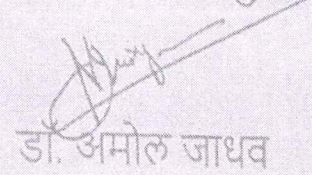 डॉ. अमोल जाधव